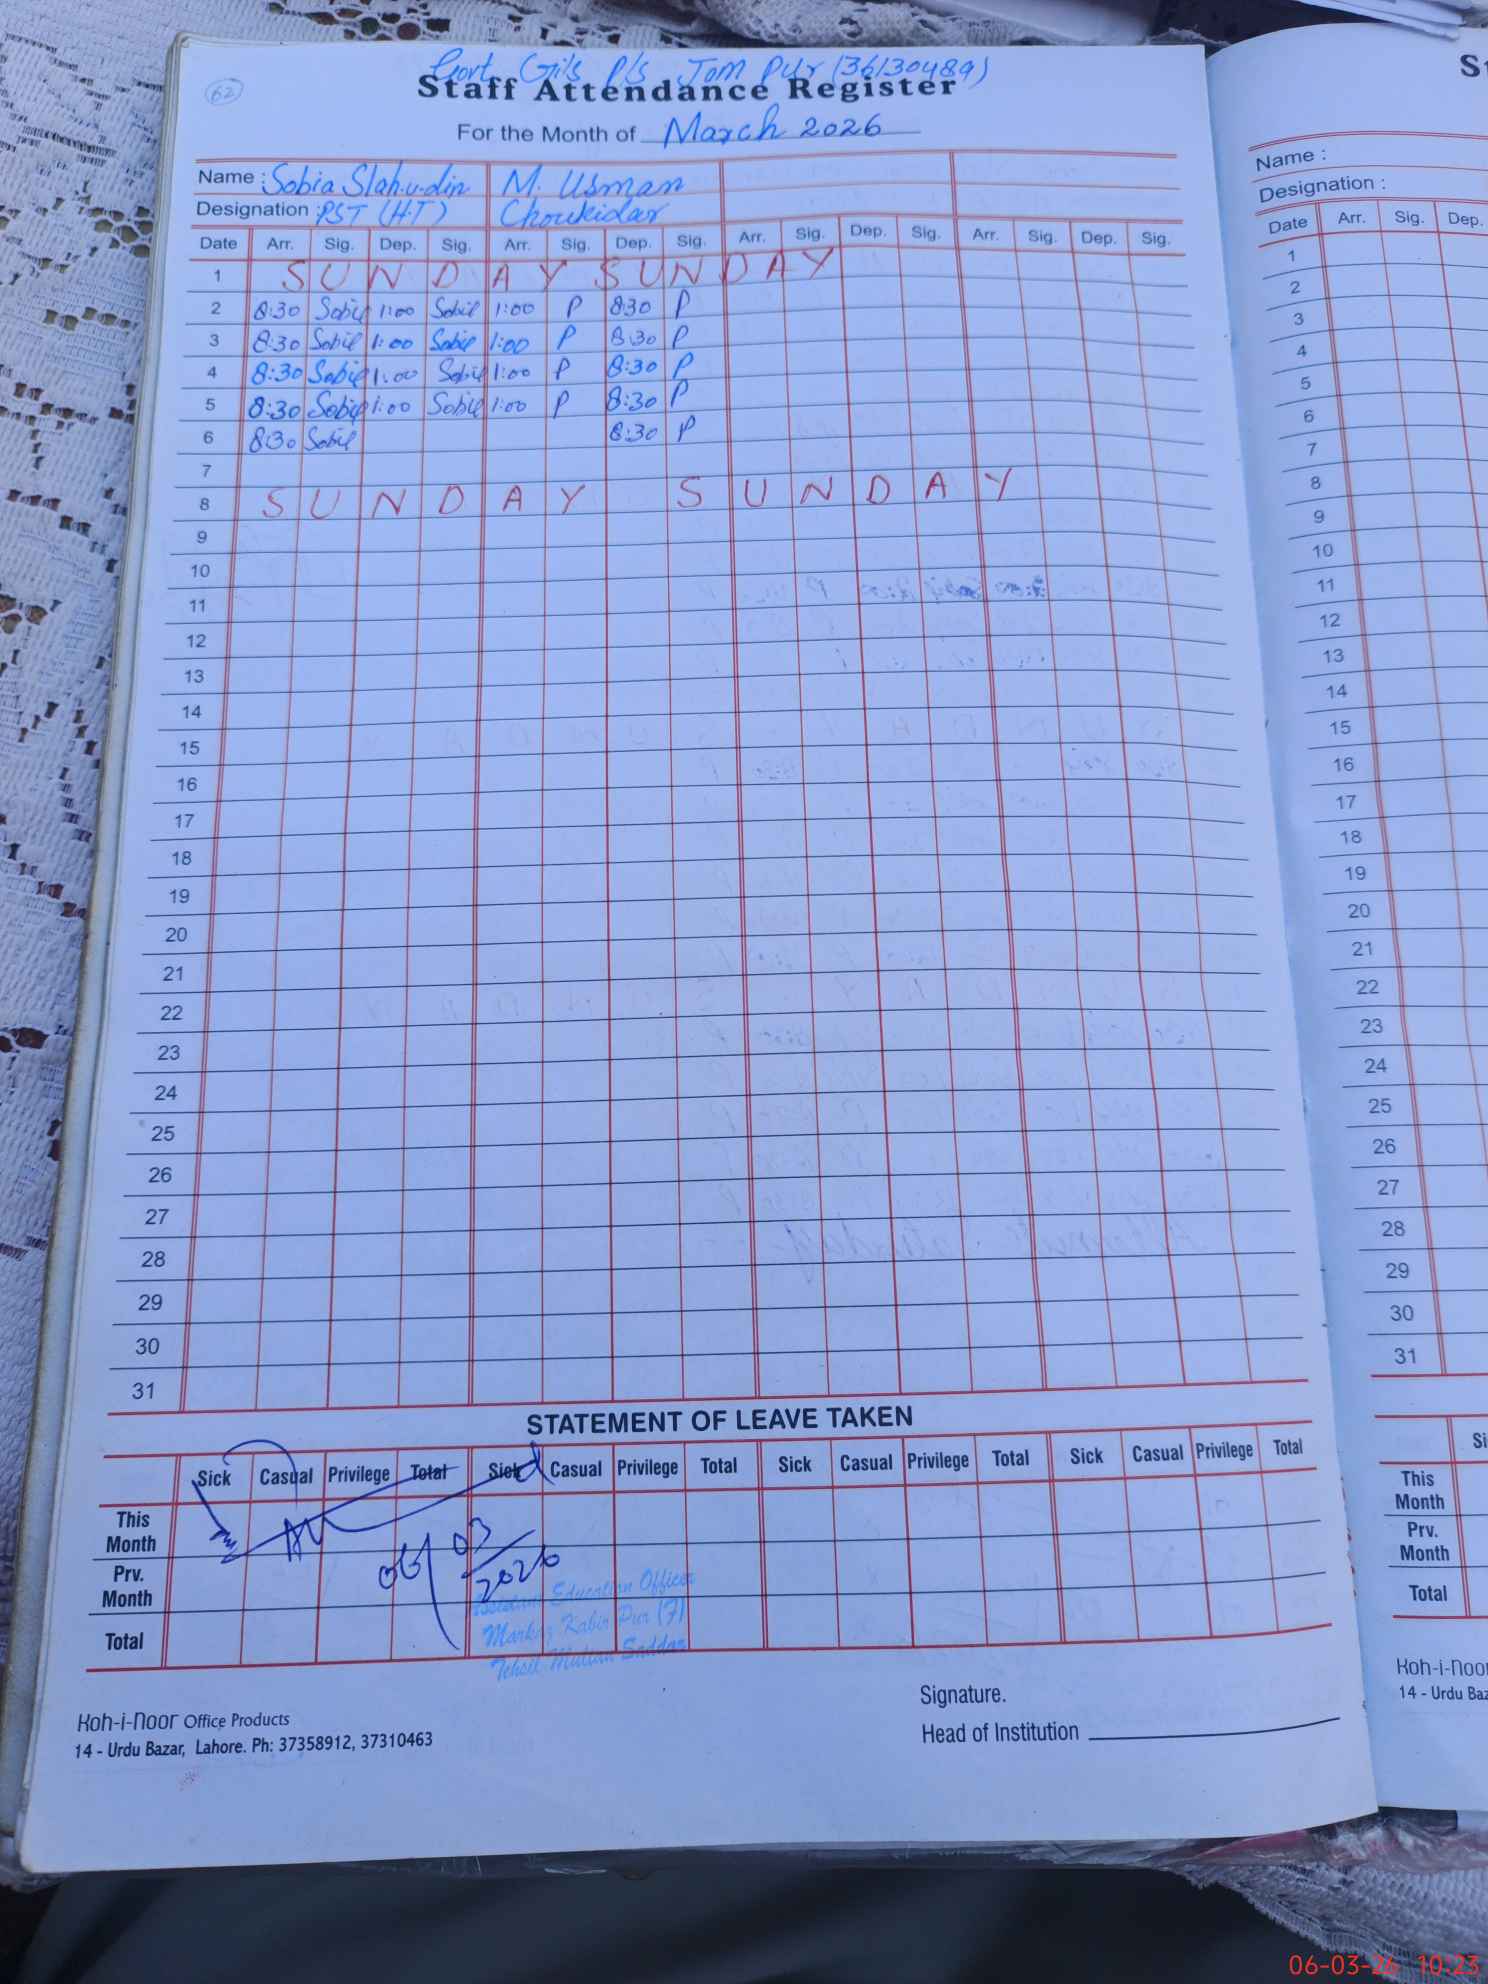 62
Govt Girls P/s Jom Pur (36130489)
Staff Attendance Register
For the Month of March 2026
Name : Sobia Slah-u-din M. Usman
Designation : PST (H.T) Choukidar
Date Arr. Sig. Dep. Sig. Arr. Sig. Dep. Sig. Arr. Sig. Dep. Sig. Arr. Sig. Dep. Sig.
1 S U N D A Y S U N D A Y
2 8:30 Sobia 1:00 Sobia 1:00 P 8:30 P
3 8:30 Sobia 1:00 Sobia 1:00 P 8:30 P
4 8:30 Sobia 1:00 Sobia 1:00 P 8:30 P
5 8:30 Sobia 1:00 Sobia 1:00 P 8:30 P
6 8:30 Sobia 8:30 P
7
8 S U N D A Y S U N D A Y
9
10
11
12
13
14
15
16
17
18
19
20
21
22
23
24
25
26
27
28
29
30
31
STATEMENT OF LEAVE TAKEN
Sick Casual Privilege Total Sick Casual Privilege Total Sick Casual Privilege Total Sick Casual Privilege Total
This Month
Prv. Month
Total
06/03/2026
Assistant Education Officer
Markaz Kabir Pur (F)
Tehsil Multan Saddar
Signature.
Head of Institution
Koh-i-Noor Office Products
14 - Urdu Bazar, Lahore. Ph: 37358912, 37310463
Name :
Designation :
Date Arr. Sig. Dep.
1
2
3
4
5
6
7
8
9
10
11
12
13
14
15
16
17
18
19
20
21
22
23
24
25
26
27
28
29
30
31
This Month
Prv. Month
Total
Koh-i-Noor
14 - Urdu
06-03-26 10:23